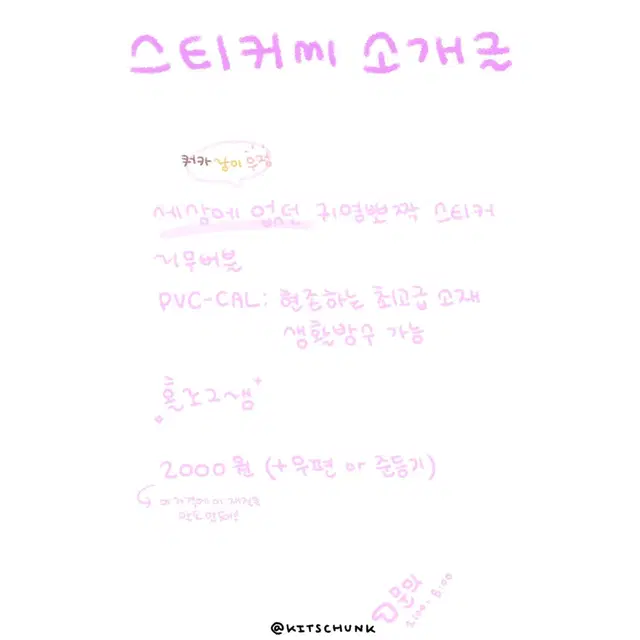 스티커씨 소개글
커카 낭이 우정
세상에 없던 귀염뽀짝 스티커
리무버블
PVC-CAL: 현존하는 최고급 소재
생활방수 가능
홀로그램
2000원 (+우편 or 준등기)
이 가격에 이 재질로
말도 안돼!!
문의
@KITSCHUNK